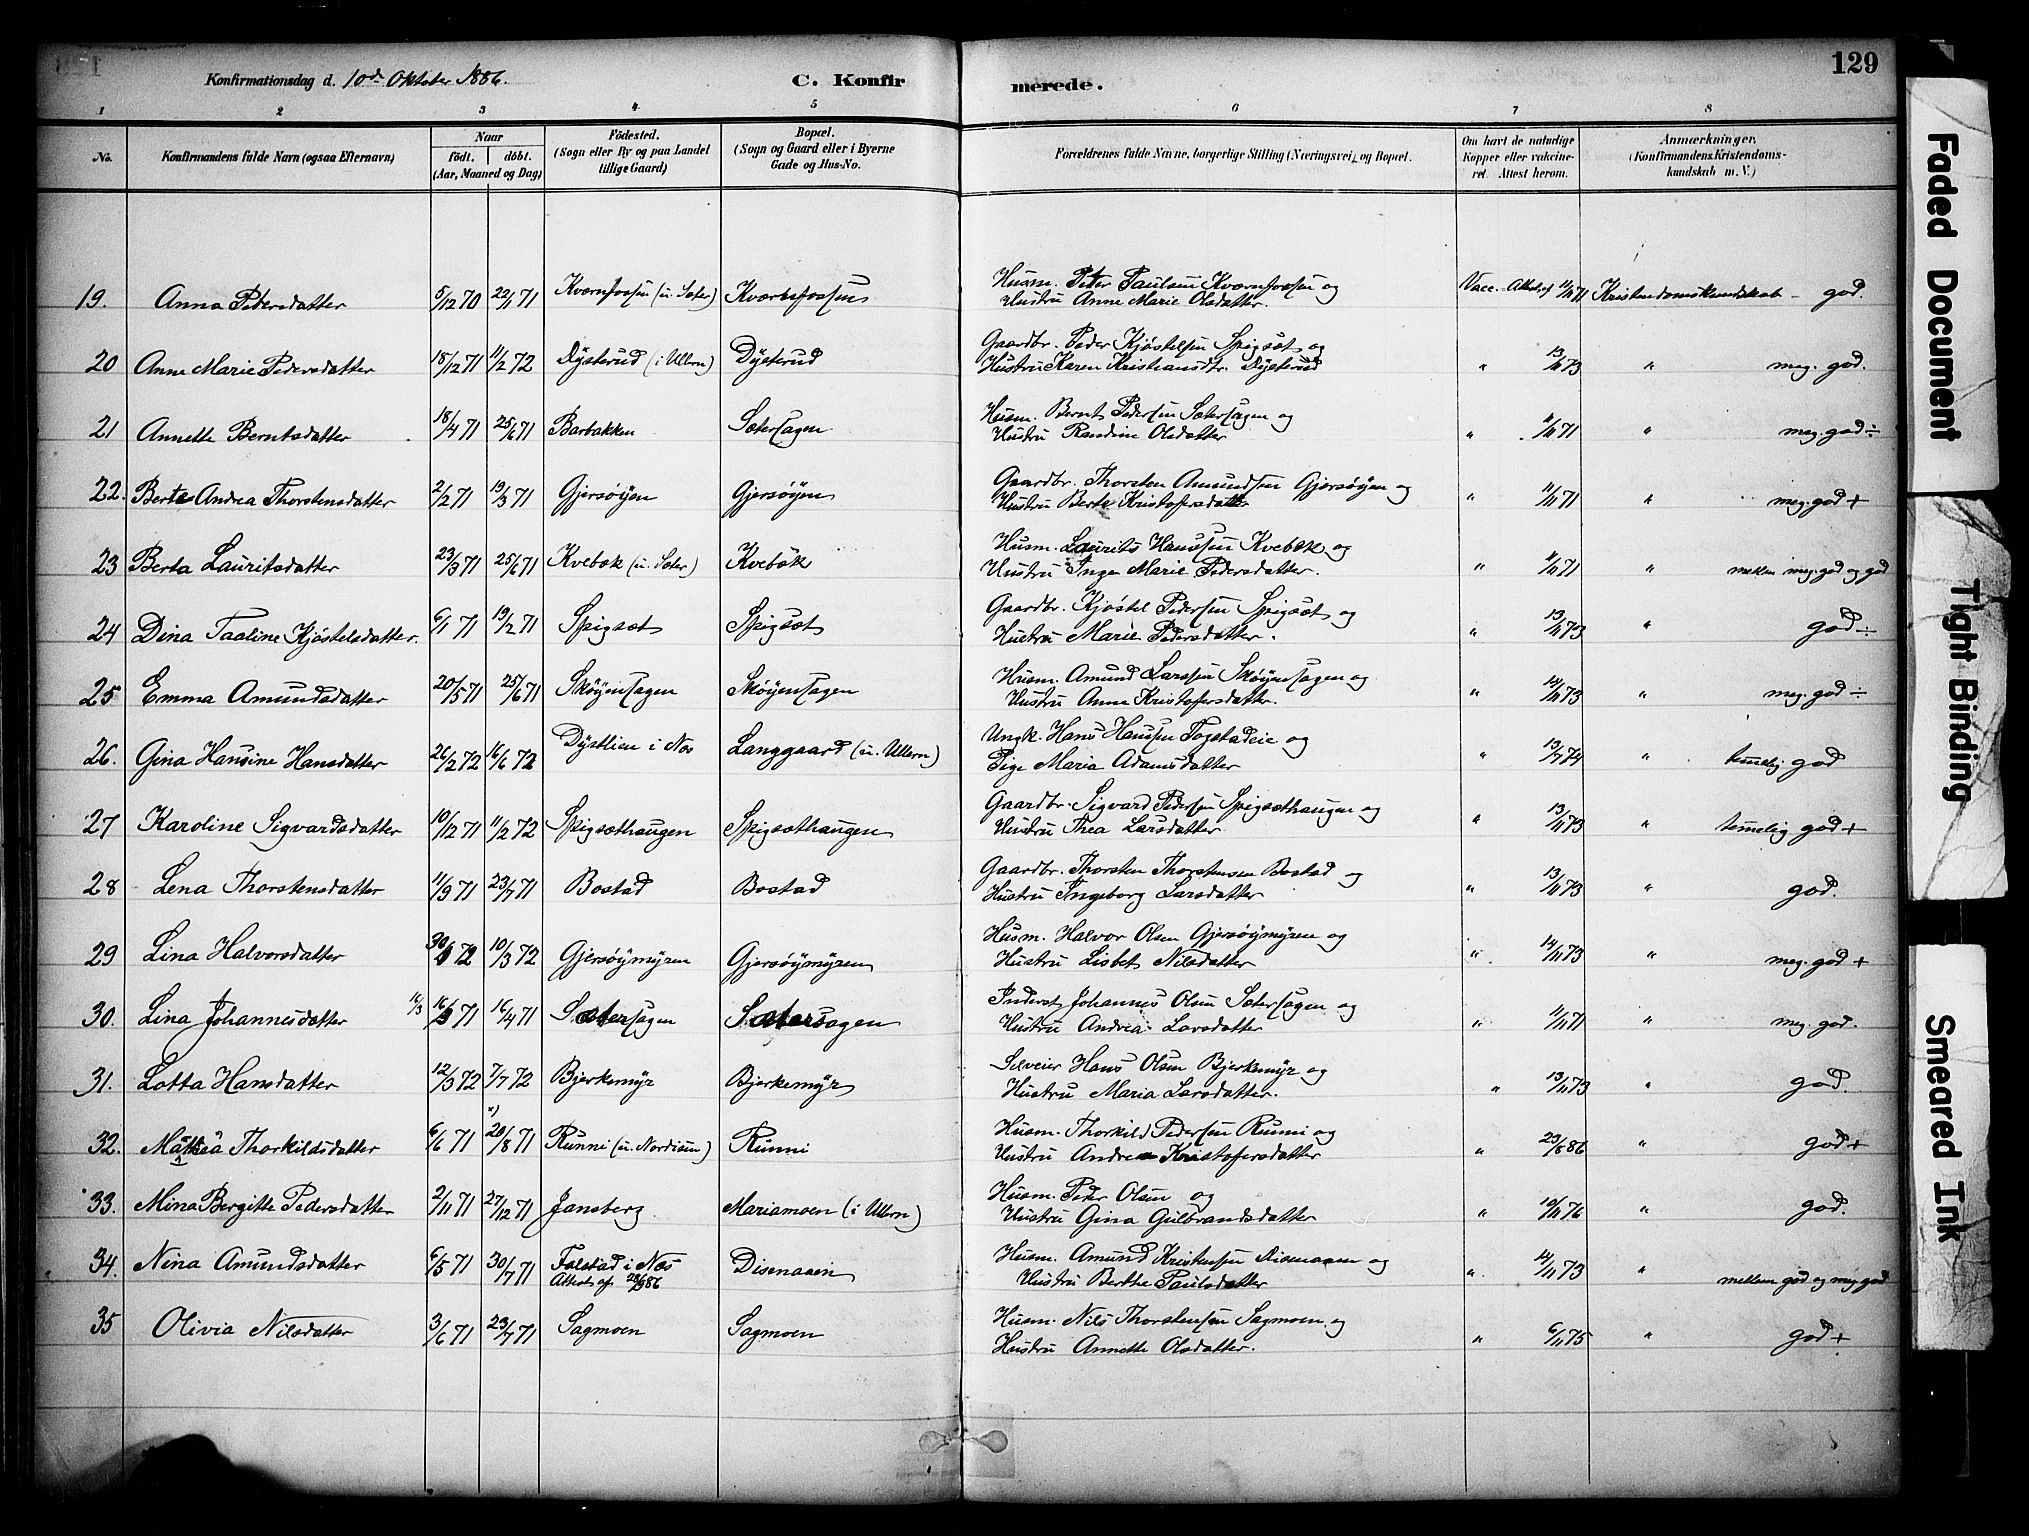 Konfirmationsdag d. 10de Oktober 1886.
C. Konfirmerede.
129
1 2 3 4 5 6 7 8
No.
Konfirmandens fulde Navn (ogsaa Efternavn)
Naar
født. døbt.
(Aar, Maaned og Dag)
Fødested.
(Sogn eller By og paa Landet
tillige Gaard)
Bopæl.
(Sogn og Gaard eller i Byerne
Gade og Hus-No.
Forældrenes fulde Navne, borgerlige Stilling (Næringsvei) og Bopæl.
Om havt de naturlige
Kopper eller vakcine-
ret. Attest herom.
Anmærkninger.
(Konfirmandens Kristendoms-
kundskab m. V.)
19. Anna Pedersdatter 5/12 70 22/1 71 Kværnfossen (u. Sæter) Kværnfossen Husm. Peter Paulsen Kværnfossen og
Hustru Anne Marie Olsdatter. Vacc. Attest af 11/11 71 Kristendomskundskab - god.
20 Anne Marie Pedersdatter 15/12 71 11/2 72 Dysterud (i Ullern) Dysterud Gaardbr. Peder Kjøstelsen Spigset og
Hustru Karen Kristiansdtr. Dysterud " 13/11 73 " meg. god.
21 Annette Berntsdatter 18/4 71 25/6 71 Barbakken Sætersagen Husm. Bernt Pedersen Sætersagen og
Hustru Randine Olsdatter " 11/11 71 " meg. god ÷
22. Berte Andrea Thorstensdatter 2/2 71 19/3 71 Gjersøyen Gjersøyen Gaardbr. Thorsten Amundsen Gjersøyen og
Hustru Berte Kristofersdatter " 11/11 71 " meg. god +
23 Berta Lauritsdatter 23/3 71 25/6 71 Kvebæk (u. Sæter.) Kvebæk Husm. Laurits Hansen Kvebæk og
Hustru Inge Marie Pedersdatter. " 11/11 71 " mellem meg. god og god
24 Dina Taaline Kjøstelsdatter. 6/1 71 19/2 71 Spigset Spigset Gaardbr. Kjøstel Pedersen Spigset og
Hustru Marie Pedersdatter. " 13/11 73 " god ÷
25 Emma Amundsdatter 20/5 71 25/6 71 Skøyensagen Skøyensagen Husm. Amund Larssen Skøyensagen og
Hustru Anne Kristofersdatter. " 14/11 73 " meg. god ÷
26. Gina Hansine Hansdatter 26/2 72 16/6 72 Dystlien i Nes Langgaard (u. Ullern) Ungk. Hans Hansen Fogstadeie og
Pige Maria Adamsdatter " 13/7 74 " temelig god
27 Karoline Sigvardsdatter 10/12 71 11/2 72 Spigsethaugen Spigsethaugen Gaardbr. Sigvard Pedersen Spigsethaugen og
Hustru Thea Larsdatter " 13/11 73 " temelig god +
28 Lena Thorstensdatter 11/3 71 23/7 71 Bostad Bostad Gaardbr. Thorsten Thorstensen Bostad og
Hustru Ingeborg Larsdatter " 13/11 73 " god.
29 Lina Halvorsdatter 30/ 72 10/3 72 Gjersøymyren Gjersøymyren Husm. Halvor Olsen Gjersøymyren og
Hustru Lisbet Nilsdatter " 14/11 73 " meg. god +
30. Lina Johannesdatter 16/3 16/3 71 16/4 71 Sætersagen Sætersagen Inderst Johannes Olsen Sætersagen og
Hustru Andrea Larsdatter " 11/11 71 " meg. god.
31. Lotta Hansdatter 12/3 72 7/7 72 Bjerkemyr Bjerkemyr Selveier Hans Olsen Bjerkemyr og
Hustru Maria Larsdatter. " 13/11 73 " god.
32. Mathea Thorkildsdatter 6/6 71 20/8 71 Runni (u. Nordisen) Runni Husm. Thorkild Pedersen Runni og
Hustru Andrea Kristofersdatter " 23/8 86 " god +
33. Mina Bergitte Pedersdatter 2/11 71 27/12 71 Jansberg Mariamoen (i Ullern) Husm. Peder Olsen og
Hustru Gina Gulbrandsdatter " 10/11 76 " god.
34. Nina Amundsdatter 6/5 71 30/7 71 Falstad i Nes
Attest af 28/ 86 Disenaaen Husm. Amund Kristensen Disenaaen og
Hustru Berthe Paulsdatter " 14/11 73 " mellem god og meg god
35 Olivia Nilsdatter 3/6 71 23/7 71 Sagmoen Sagmoen Husm. Nils Thorstensen Sagmoen og
Hustru Annette Olsdatter. " 6/11 75 " god +
Faded Document
Tight Binding
Smeared Ink